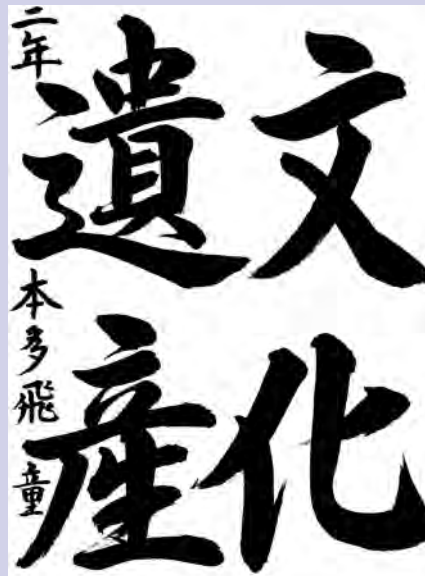 文化
遺産
二年 本多飛童